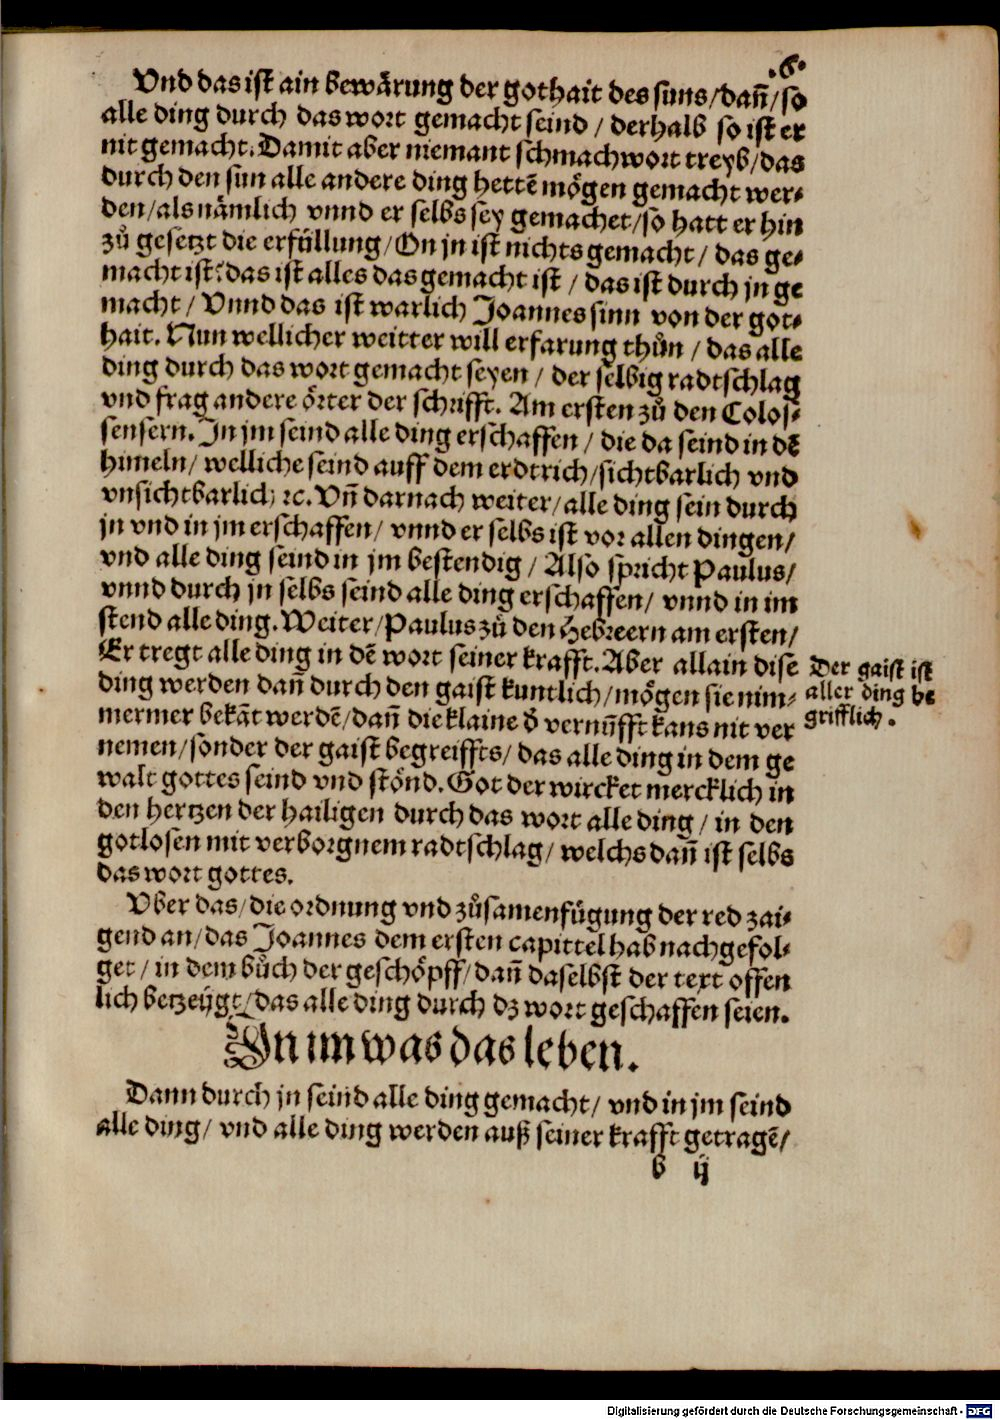 .6.
Vnd das ist ain bewärung der gothait des suns/dañ/so
alle ding durch das wort gemacht seind / derhalb so ist er
nit gemacht. Damit aber niemant schmachwort treyb/das
durch den sun alle andere ding hettẽ mögen gemacht wer⸗
den/als nämlich vnnd er selbs sey gemachet/so hatt er hin
zů gesetzt die erfüllung/On jn ist nichts gemacht / das ge⸗
macht ist: das ist alles das gemacht ist / das ist durch jn ge
macht / Vnnd das ist warlich Joannes sinn von der got⸗
hait. Nun wellicher weitter will erfarung thůn / das alle
ding durch das wort gemacht seyen / der selbig radtschlag
vnd frag andere örter der schrifft. Am ersten zů den Colos⸗
sensern. In jm seind alle ding erschaffen / die da seind in dẽ
himeln/ welliche seind auff dem erdtrich/sichtbarlich vnd
vnsichtbarlich ꝛc. Vñ darnach weiter/alle ding sein durch
jn vnd in jm erschaffen/ vnnd er selbs ist vor allen dingen/
vnd alle ding seind in jm bestendig / Also spricht Paulus/
vnnd durch jn selbs seind alle ding erschaffen/ vnnd in im
stend alle ding. Weiter/Paulus zů den Hebreern am ersten/
Er tregt alle ding in dẽ wort seiner krafft. Aber allain dise
ding werden dañ durch den gaist kuntlich/mögen sie nim⸗
mermer bekãt werdẽ/dañ die klaine ð vernũfft kans nit ver
nemen/sonder der gaist begreiffts/ das alle ding in dem ge
walt gottes seind vnd stönd. Got der wircket mercklich in
den hertzen der hailigen durch das wort alle ding / in den
gotlosen mit verborgnem radtschlag/ welchs dañ ist selbs
das wort gottes.
Der gaist ist
aller ding be
grifflich.
Vber das/die ordnung vnd zůsamenfügung der red zai⸗
gend an/das Joannes dem ersten capittel hab nachgefol⸗
get / in dem bůch der geschöpff/dañ daselbst der text offen
lich betzeÿgt/das alle ding durch dz wort geschaffen seien.
In im was das leben.
Dann durch jn seind alle ding gemacht/ vnd in jm seind
alle ding/ vnd alle ding werden auß seiner krafft getragẽ/
b ij
Digitalisierung gefördert durch die Deutsche Forschungsgemeinschaft - DFG